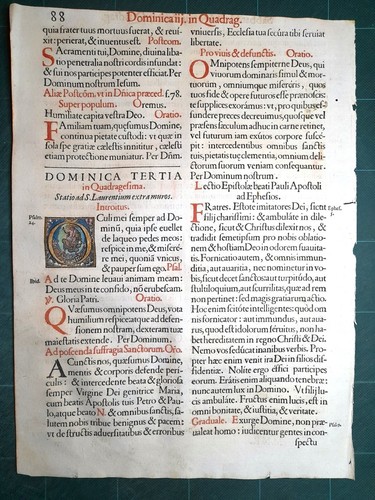 88
Dominica iij. in Quadrag.
quia frater tuus mortuus fuerat, & reui-
xit: perierat, & inuentus est. Postcom.
Sacramenti tui, Domine, diuina liba-
tio penetralia nostri cordis infundat:
& sui nos participes potenter efficiat. Per
Dominum nostrum Iesum.
Aliæ Postcõm. vt in Dñica præced. f.78.
Super populum. Oremus.
Humiliate capita vestra Deo. Oratio.
Familiam tuam, quæsumus Domine,
continua pietate custodi: vt quæ in
sola spe gratiæ cælestis innititur, cælesti
etiam protectione muniatur. Per Dñm.
DOMINICA TERTIA
in Quadragesima.
Statio ad S. Laurentium extra muros.
Introitus.
Psalm. 24.
Oculi mei semper ad Do-
minũ, quia ipse euellet
de laqueo pedes meos:
respice in me, & misere-
re mei, quoniã vnicus,
& pauper sum ego. Psal.
Ibid.
Ad te Domine leuaui animam meam:
Deus meus in te confido, nõ erubescam.
℣. Gloria Patri. Oratio.
Quæsumus omnipotens Deus, vota
humilium respice: atque ad defen-
sionem nostram, dexteram tuæ
maiestatis extende. Per Dominum.
Ad poscenda suffragia Sanctorum. Oro.
A Cunctis nos, quæsumus Domine,
mentis & corporis defende peri-
culis: & intercedente beata & gloriosa
semper Virgine Dei genitrice Maria,
cum beatis Apostolis tuis Petro & Pau-
lo, atque beato N. & omnibus sanctis, sa-
lutem nobis tribue benignus & pacem:
vt destructis aduersitatibus & erroribus
vniuersis, Ecclesia tua secura tibi seruiat
libertate.
Pro viuis & defunctis. Oratio.
Omnipotens sempiterne Deus, qui
viuorum dominaris simul & mor-
tuorum, omniumque misereris, quos
tuos fide & opere futuros esse prænoscis:
te supplices exorámus: vt, pro quibus ef-
fundere preces decreuimus, quosque vel
præsens sæculum adhuc in carne retinet,
vel futurum iam exutos corpore susce-
pit: intercedentibus omnibus sanctis
tuis, pietatis tuæ clementia, omnium deli-
ctorum suorum veniam consequantur.
Per Dominum nostrum.
Lectio Epistolæ beati Pauli Apostoli
ad Ephesios.
Fratres. Estote imitatores Dei, sicut
Ephes. 5.
filij charissimi: & ambulate in dile-
ctione, sicut & Christus dilexit nos, &
tradidit semetipsum pro nobis oblatio-
nem & hostiam Deo in odorem suauita-
tis. Fornicatio autem, & omnis immun-
ditia, aut auaritia, nec nominetur in vo-
bis, sicut decet sanctos: aut turpitudo, aut
stultiloquium, aut scurrilitas, quæ ad rem
non pertinet: sed magis gratiarum actio.
Hoc enim scitote intelligentes: quòd om
nis fornicator: aut immundus, aut aua-
rus, quod est idolorum seruitus, non ha-
bet hereditatem in regno Christi & Dei.
Nemo vos seducat inanibus verbis. Pro-
pter hæc enim venit ira Dei in filios dif-
fidentiæ. Nolite ergo effici participes
eorum. Eratis enim aliquando tenebræ:
nunc autem lux in Domino. Vt filij lu-
cis ambulate. Fructus enim lucis, est in
omni bonitate, & iustitia, & veritate.
Graduale. Exurge Domine, non præ-
ualeat homo: iudicentur gentes in con-
spectu